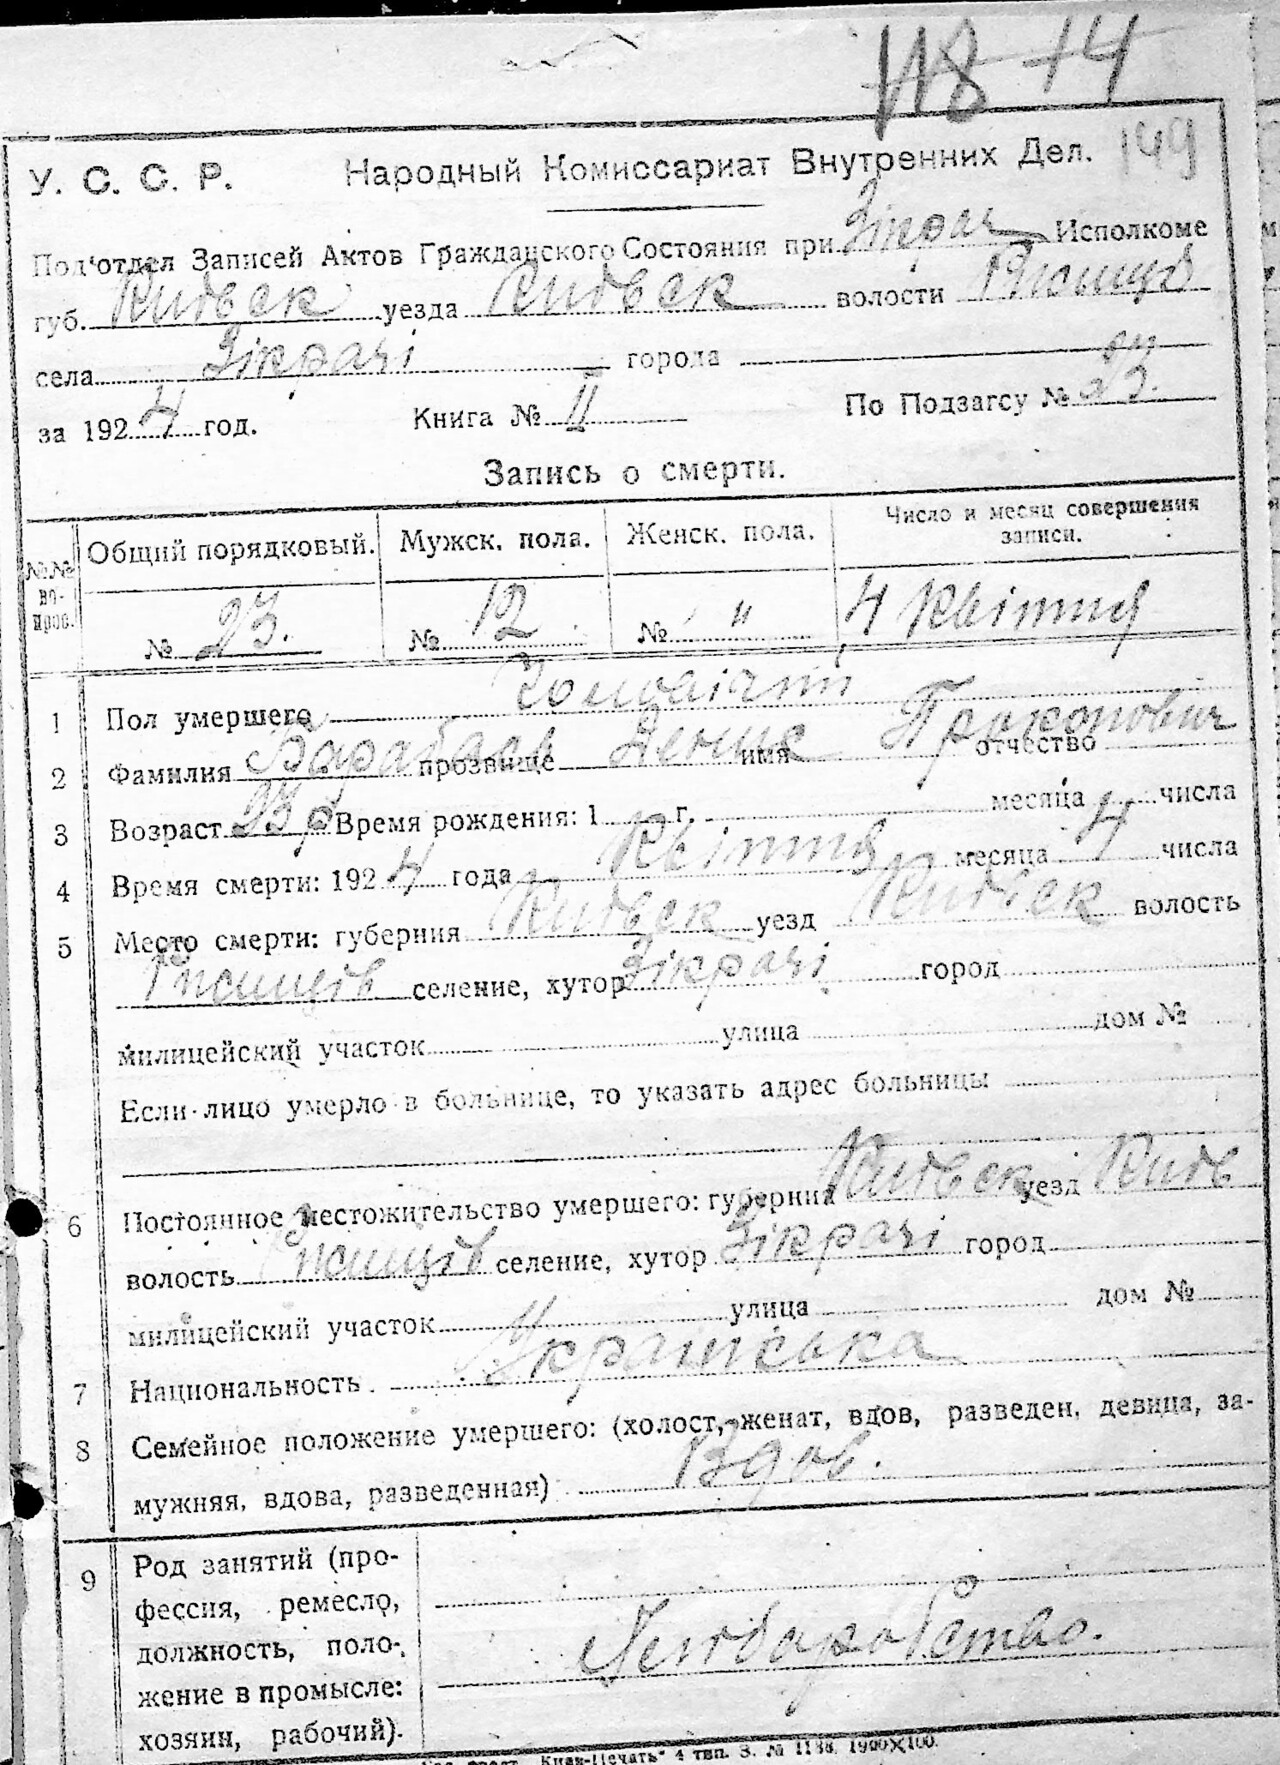 118 14
149
У. С. С. Р. Народный Комиссариат Внутренних Дел.
Под'отдел Записей Актов Гражданского Состояния при Зікрач Исполкоме
губ. Київск уезда Київск волости Ржищів
села Зікрачі города
за 1924 год. Книга № II По Подзагсу № 23.
Запись о смерти.
№№ во-прос. Общий порядковый. Мужск. пола. Женск. пола. Число и месяц совершения записи.
№ 23. № 12 № " 4 Квітня
1 Пол умершего Чоловічий
2 Фамилия Барабаш прозвище Денис имя Прокопович отчество
3 Возраст 23 р Время рождения: 1 г. месяца числа
4 Время смерти: 1924 года Квітня месяца 4 числа
5 Место смерти: губерния Київск уезд Київск волость
Ржищів селение, хутор Зікрачі город
милицейский участок улица дом №
Если лицо умерло в больнице, то указать адрес больницы
6 Постоянное местожительство умершего: губерния Київск уезд Київ
волость Ржищів селение, хутор Зікрачі город
милицейский участок улица дом №
7 Национальность Українська
8 Семейное положение умершего: (холост, женат, вдов, разведен, девица, за-
мужняя, вдова, разведенная) Вдов.
9 Род занятий (про-
фессия, ремесло,
должность, поло-
жение в промысле:
хозяин, рабочий).
Хліборобство.
"Киев-Печать" 4 тип. З. № 1138. 1900×100.